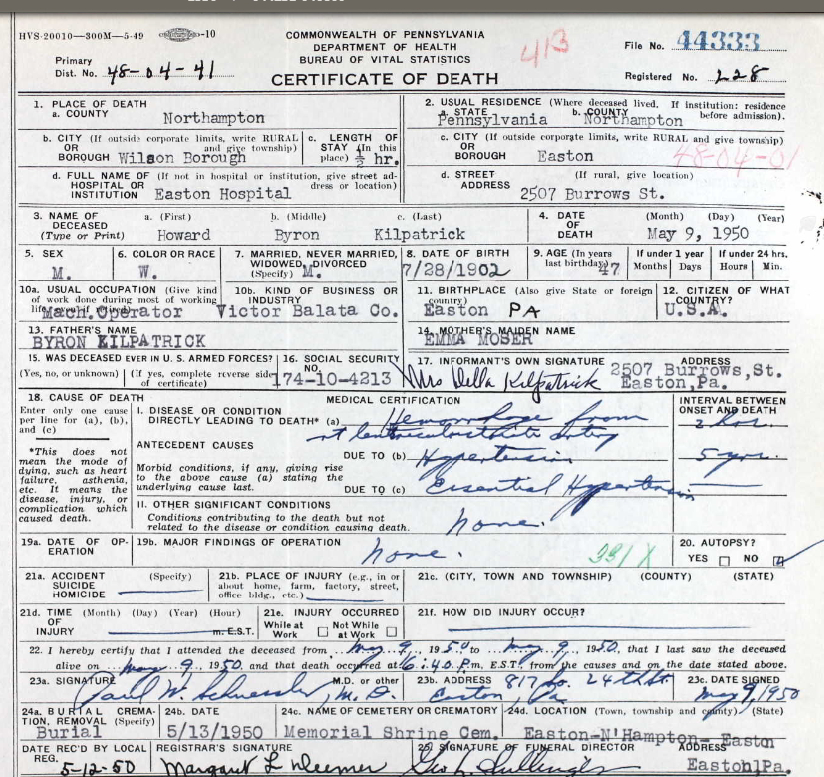 HVS-20010—300M—5-49 -10
COMMONWEALTH OF PENNSYLVANIA
DEPARTMENT OF HEALTH
BUREAU OF VITAL STATISTICS
CERTIFICATE OF DEATH
413
File No. 44333
Primary
Dist. No. 48-04-41
Registered No. 228
1. PLACE OF DEATH
a. COUNTY
Northampton
2. USUAL RESIDENCE (Where deceased lived. If institution: residence before admission).
a. STATE b. COUNTY
Pennsylvania Northampton
b. CITY (If outside corporate limits, write RURAL
OR and give township)
BOROUGH Wilson Borough
c. LENGTH OF
STAY (In this
place) ½ hr.
c. CITY (If outside corporate limits, write RURAL and give township)
OR
BOROUGH Easton
48-04-01
d. FULL NAME OF (If not in hospital or institution, give street ad-
HOSPITAL OR dress or location)
INSTITUTION Easton Hospital
d. STREET (If rural, give location)
ADDRESS 2507 Burrows St.
3. NAME OF a. (First) b. (Middle) c. (Last)
DECEASED
(Type or Print) Howard Byron Kilpatrick
4. DATE (Month) (Day) (Year)
OF
DEATH May 9, 1950
5. SEX
M.
6. COLOR OR RACE
W.
7. MARRIED, NEVER MARRIED,
WIDOWED, DIVORCED
(Specify) M.
8. DATE OF BIRTH
7/28/1902
9. AGE (In years
last birthday) 47
If under 1 year
Months Days
If under 24 hrs.
Hours Min.
10a. USUAL OCCUPATION (Give kind
of work done during most of working
Mach.Operator
10b. KIND OF BUSINESS OR
INDUSTRY
Victor Balata Co.
11. BIRTHPLACE (Also give State or foreign
country)
Easton PA
12. CITIZEN OF WHAT
COUNTRY?
U.S.A.
13. FATHER'S NAME
BYRON KILPATRICK
14. MOTHER'S MAIDEN NAME
EMMA MOSER
15. WAS DECEASED EVER IN U. S. ARMED FORCES?
(Yes, no, or unknown) (If yes, complete reverse side
of certificate)
16. SOCIAL SECURITY
NO.
174-10-4213
17. INFORMANT'S OWN SIGNATURE ADDRESS
Mrs Della Kilpatrick 2507 Burrows,St.
Easton,Pa.
18. CAUSE OF DEATH
Enter only one cause
per line for (a), (b),
and (c)
*This does not
mean the mode of
dying, such as heart
failure, asthenia,
etc. It means the
disease, injury, or
complication which
caused death.
MEDICAL CERTIFICATION
INTERVAL BETWEEN
ONSET AND DEATH
I. DISEASE OR CONDITION
DIRECTLY LEADING TO DEATH* (a) Hemorrhage from
rt lenticulostriate artery
2 hrs.
ANTECEDENT CAUSES
Morbid conditions, if any, giving rise
to the above cause (a) stating the
underlying cause last.
DUE TO (b) Hypertension 5 yrs.
DUE TO (c) Essential Hypertension
II. OTHER SIGNIFICANT CONDITIONS
Conditions contributing to the death but not
related to the disease or condition causing death.
none.
19a. DATE OF OP-
ERATION
19b. MAJOR FINDINGS OF OPERATION
none.
331 X
20. AUTOPSY?
YES NO
21a. ACCIDENT (Specify)
SUICIDE
HOMICIDE
21b. PLACE OF INJURY (e.g., in or
about home, farm, factory, street,
office bldg., etc.)
21c. (CITY, TOWN AND TOWNSHIP) (COUNTY) (STATE)
21d. TIME (Month) (Day) (Year) (Hour)
OF
INJURY m. E.S.T.
21e. INJURY OCCURRED
While at Not While
Work at Work
21f. HOW DID INJURY OCCUR?
22. I hereby certify that I attended the deceased from May 9, 1950 to May 9, 1950, that I last saw the deceased
alive on May 9, 1950, and that death occurred at 6:40 P.m, E.S.T., from the causes and on the date stated above.
23a. SIGNATURE M.D. or other
M. D.
23b. ADDRESS 817 So. 24th St.
Easton Pa
23c. DATE SIGNED
May 9, 1950
24a. BURIAL CREMA-
TION, REMOVAL (Specify)
Burial
24b. DATE
5/13/1950
24c. NAME OF CEMETERY OR CREMATORY
Memorial Shrine Cem.
24d. LOCATION (Town, township and county) (State)
Easton-N'Hampton- Easton
DATE REC'D BY LOCAL
REG.
5-12-50
REGISTRAR'S SIGNATURE
25. SIGNATURE OF FUNERAL DIRECTOR ADDRESS
Easton,Pa.